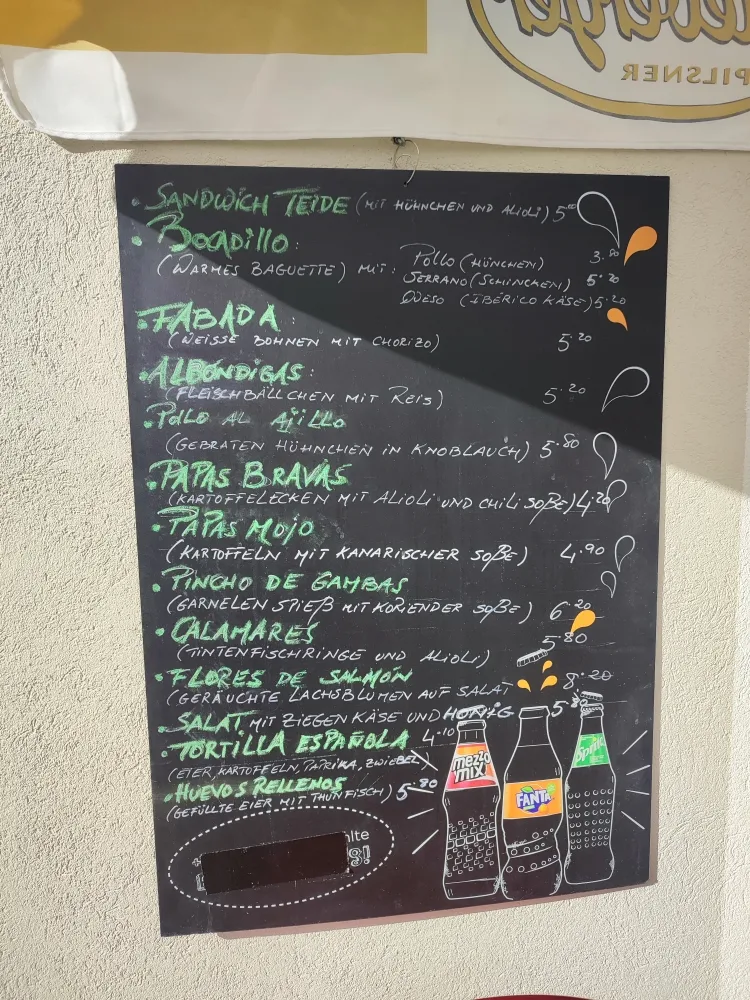 PILSNER
• SANDWICH TEIDE (MIT HÜHNCHEN UND ALIOLI) 5
• BOCADILLO:
(WARMES BAGUETTE) MIT: POLLO (HÜNCHEN) 3.90
SERRANO (SCHINCKEN) 5.20
QUESO (IBÉRICO KÄSE) 5.20
• FABADA:
(WEISSE BOHNEN MIT CHORIZO) 5.20
• ALBONDIGAS:
(FLEISCHBÄLLCHEN MIT REIS) 5.20
• POLLO AL AJILLO
(GEBRATEN HÜHNCHEN IN KNOBLAUCH) 5.80
• PAPAS BRAVAS
(KARTOFFELECKEN MIT ALIOLI UND CHILI SOßE) 4.20
• PAPAS MOJO
(KARTOFFELN MIT KANARISCHER SOßE) 4.90
• PINCHO DE GAMBAS
(GARNELEN SPIEß MIT KORIENDER SOßE) 6.20
• CALAMARES 5.80
(TINTENFISCHRINGE UND ALIOLI)
• FLORES DE SALMÓN 8.20
(GERÄUCHTE LACHSBLUMEN AUF SALAT
• SALAT MIT ZIEGEN KÄSE UND HONIG 5.80
• TORTILLA ESPAÑOLA 4.10
(EIER, KARTOFFELN, PAPRIKA, ZWIEBEL)
• HUEVOS RELLENOS 5.80
(GEFÜLLTE EIER MIT THUNFISCH)
mezzo mix
FANTA
Sprite